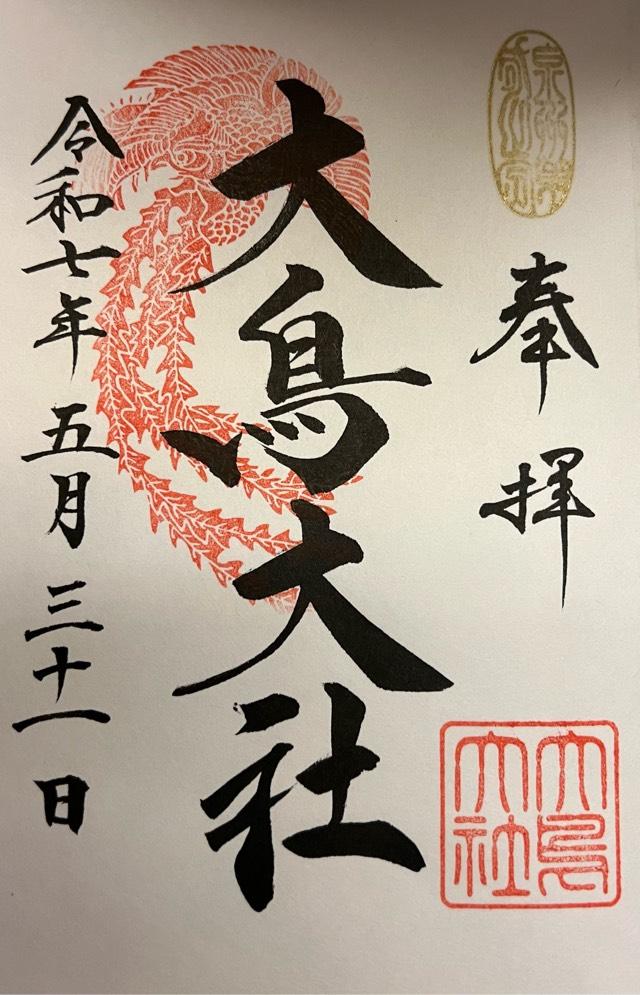 奉拝
大鳥大社
令和七年五月三十一日
大鳥
大社